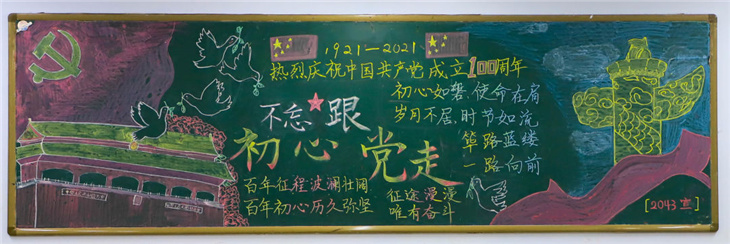 1921—2021
热烈庆祝中国共产党成立100周年
不忘★跟
初心党走
初心如磐,使命在肩
岁月不居,时节如流
筚路蓝缕
一路向前
百年征程波澜壮阔
百年初心历久弥坚
征途漫漫
唯有奋斗